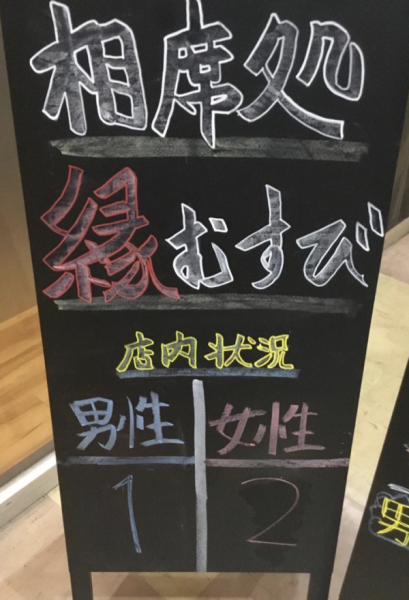 相席処
縁むすび
店内状況
男性 女性
1 2
男